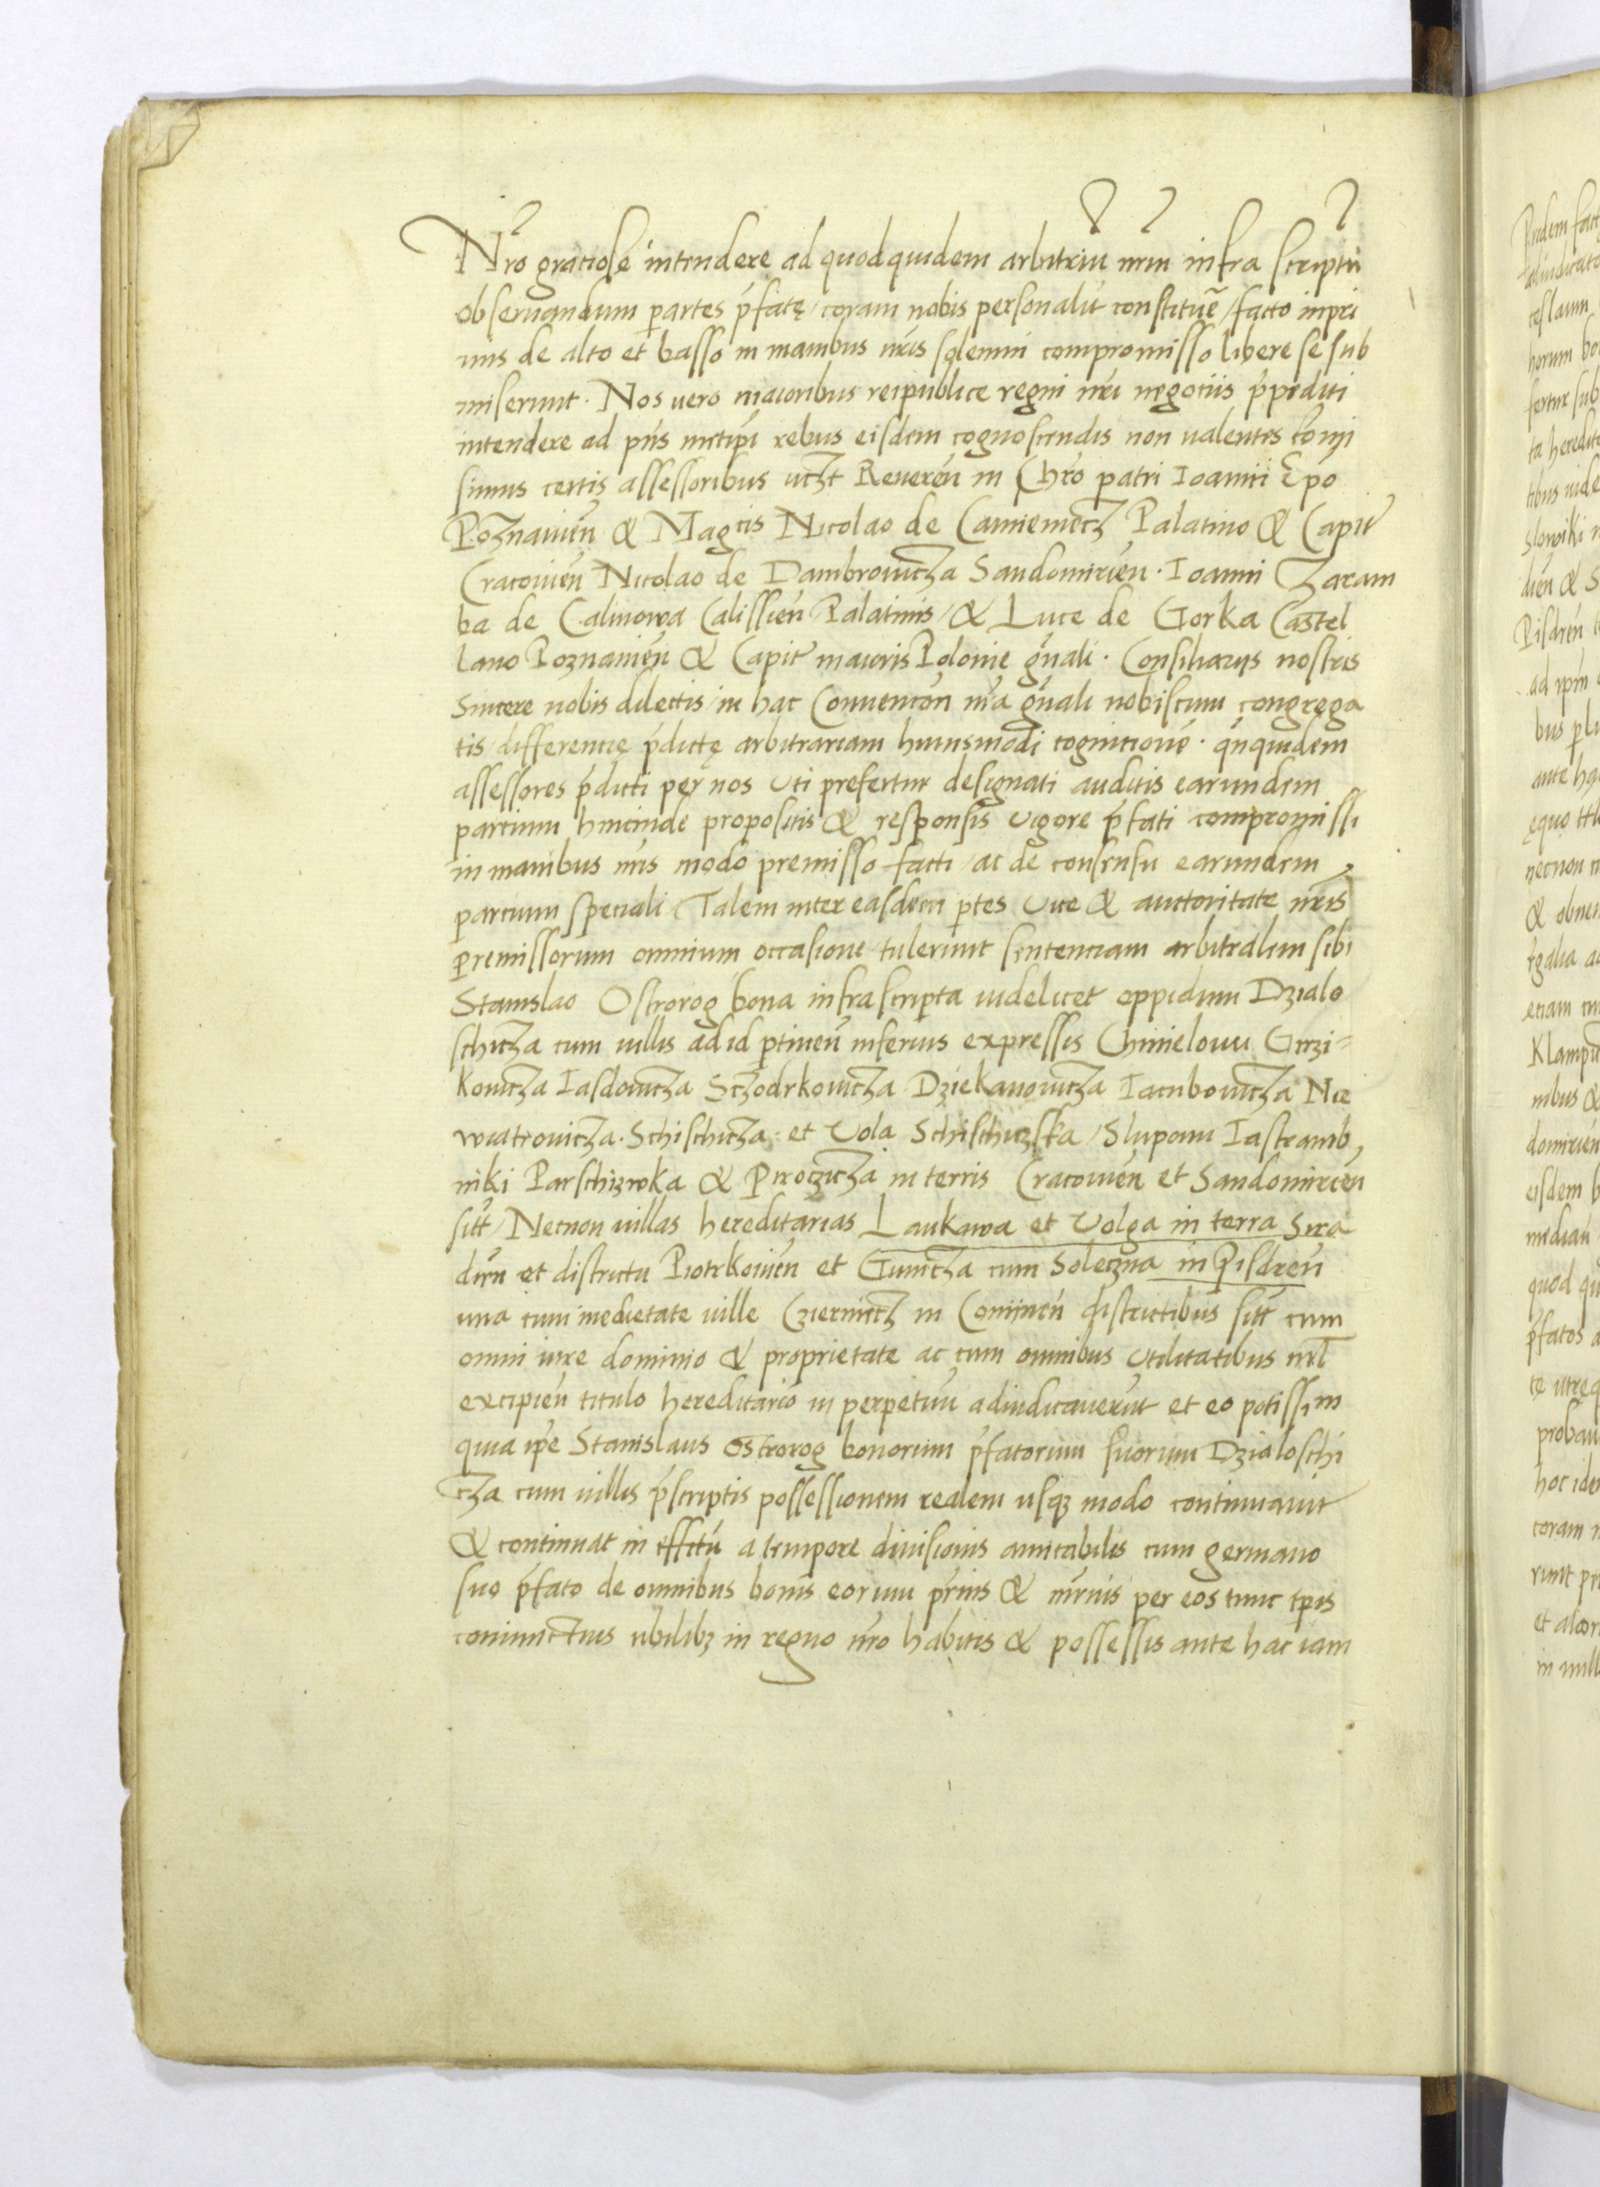 Nr̃o graciose intendere ad quodquidem arbitriũ nrm̃ infra scriptũ
obseruandum partes p̃fatę / coram nobis personalit̃ constituẽ / facto inpri
mis de alto et basso in manibus nr̃is solemni compromisso libere se sub
miserunt. Nos uero maioribus reipublice regni nr̃i negociis p̃pediti
intendere ad p̃ns rebus eisdem cognoscendis non ualentes com̃i
simus certis assessoribus Reuereñ in Chr̃o patri Ioanni Ep̃o
Poznanieñ & Magcis Nicolao de Camiemecz Palatino & Capit̃
Cracouieñ Nicolao de Dambrouicza Sandomirieñ. Ioanni Zaram
ba de Calinowa Calissieñ Palatinis / & Luce de Gorka Castel
lano Poznanieñ & Capit̃ maioris Polonie gñali. Consiliarijs nostris
sincere nobis dilectis in hac Conuencioñ nr̃a gñali nobiscum congrega
tis / differencię p̃dictę arbitrariam huiusmodi cognicionẽ. qñquidem
assessores p̃dicti per nos uti prefertur designati auditis earundem
parcium hincinde propositis & responsis uigore p̃fati compromissi
in manibus nr̃is modo premisso facti / ac de consensu earundem
parcium speciali Talem inter easdem ptes Uice & auctoritate nr̃is
premissorum omnium occasione tulerunt sentenciam arbitralem sibi
Stanislao Ostrorog bona infrascripta uidelicet oppidum Dzialo
schicza cum uillis ad id ptineñ inferius expressis Chmielouu Grzi-
kouicza Iasdouicza Sczodrkouicza Dziekanouicza Iacubouicza Nie
wiatrouicza. Schischicza. et Uola Schischiczska / Slupouu Iastramb
niki Parschiwka & Pirocicza in terris Cracouieñ et Sandomirieñ
sitt̃ / Necnon uillas hereditarias Laukawa et Uolga in terra Sira
dieñ et districtu Piotrkouieñ et Gunicza cum Soleczna in Pisdreñ
una cum medietate uille Czierniecz in Conineñ districtibus sitt̃ cum
omni iure dominio & proprietate ac cum omnibus utilitatibus nil̃
excipieñ titulo hereditario in perpetuũ adiudicauerũt et eo potissim
quia ip̃e Stanislaus Ostrorog bonorum p̃fatorum suorum Dzialoschi
cza cum uillis p̃scriptis possessionem realem usqz modo continuauit
& continuat in effectu a tempore diuisionis amicabilis cum germano
suo p̃fato de omnibus bonis eorum p̃rnis & mr̃nis per eos tunc tpis
coniunctim ubilibz in regno nr̃o habitis & possessis ante hac iam